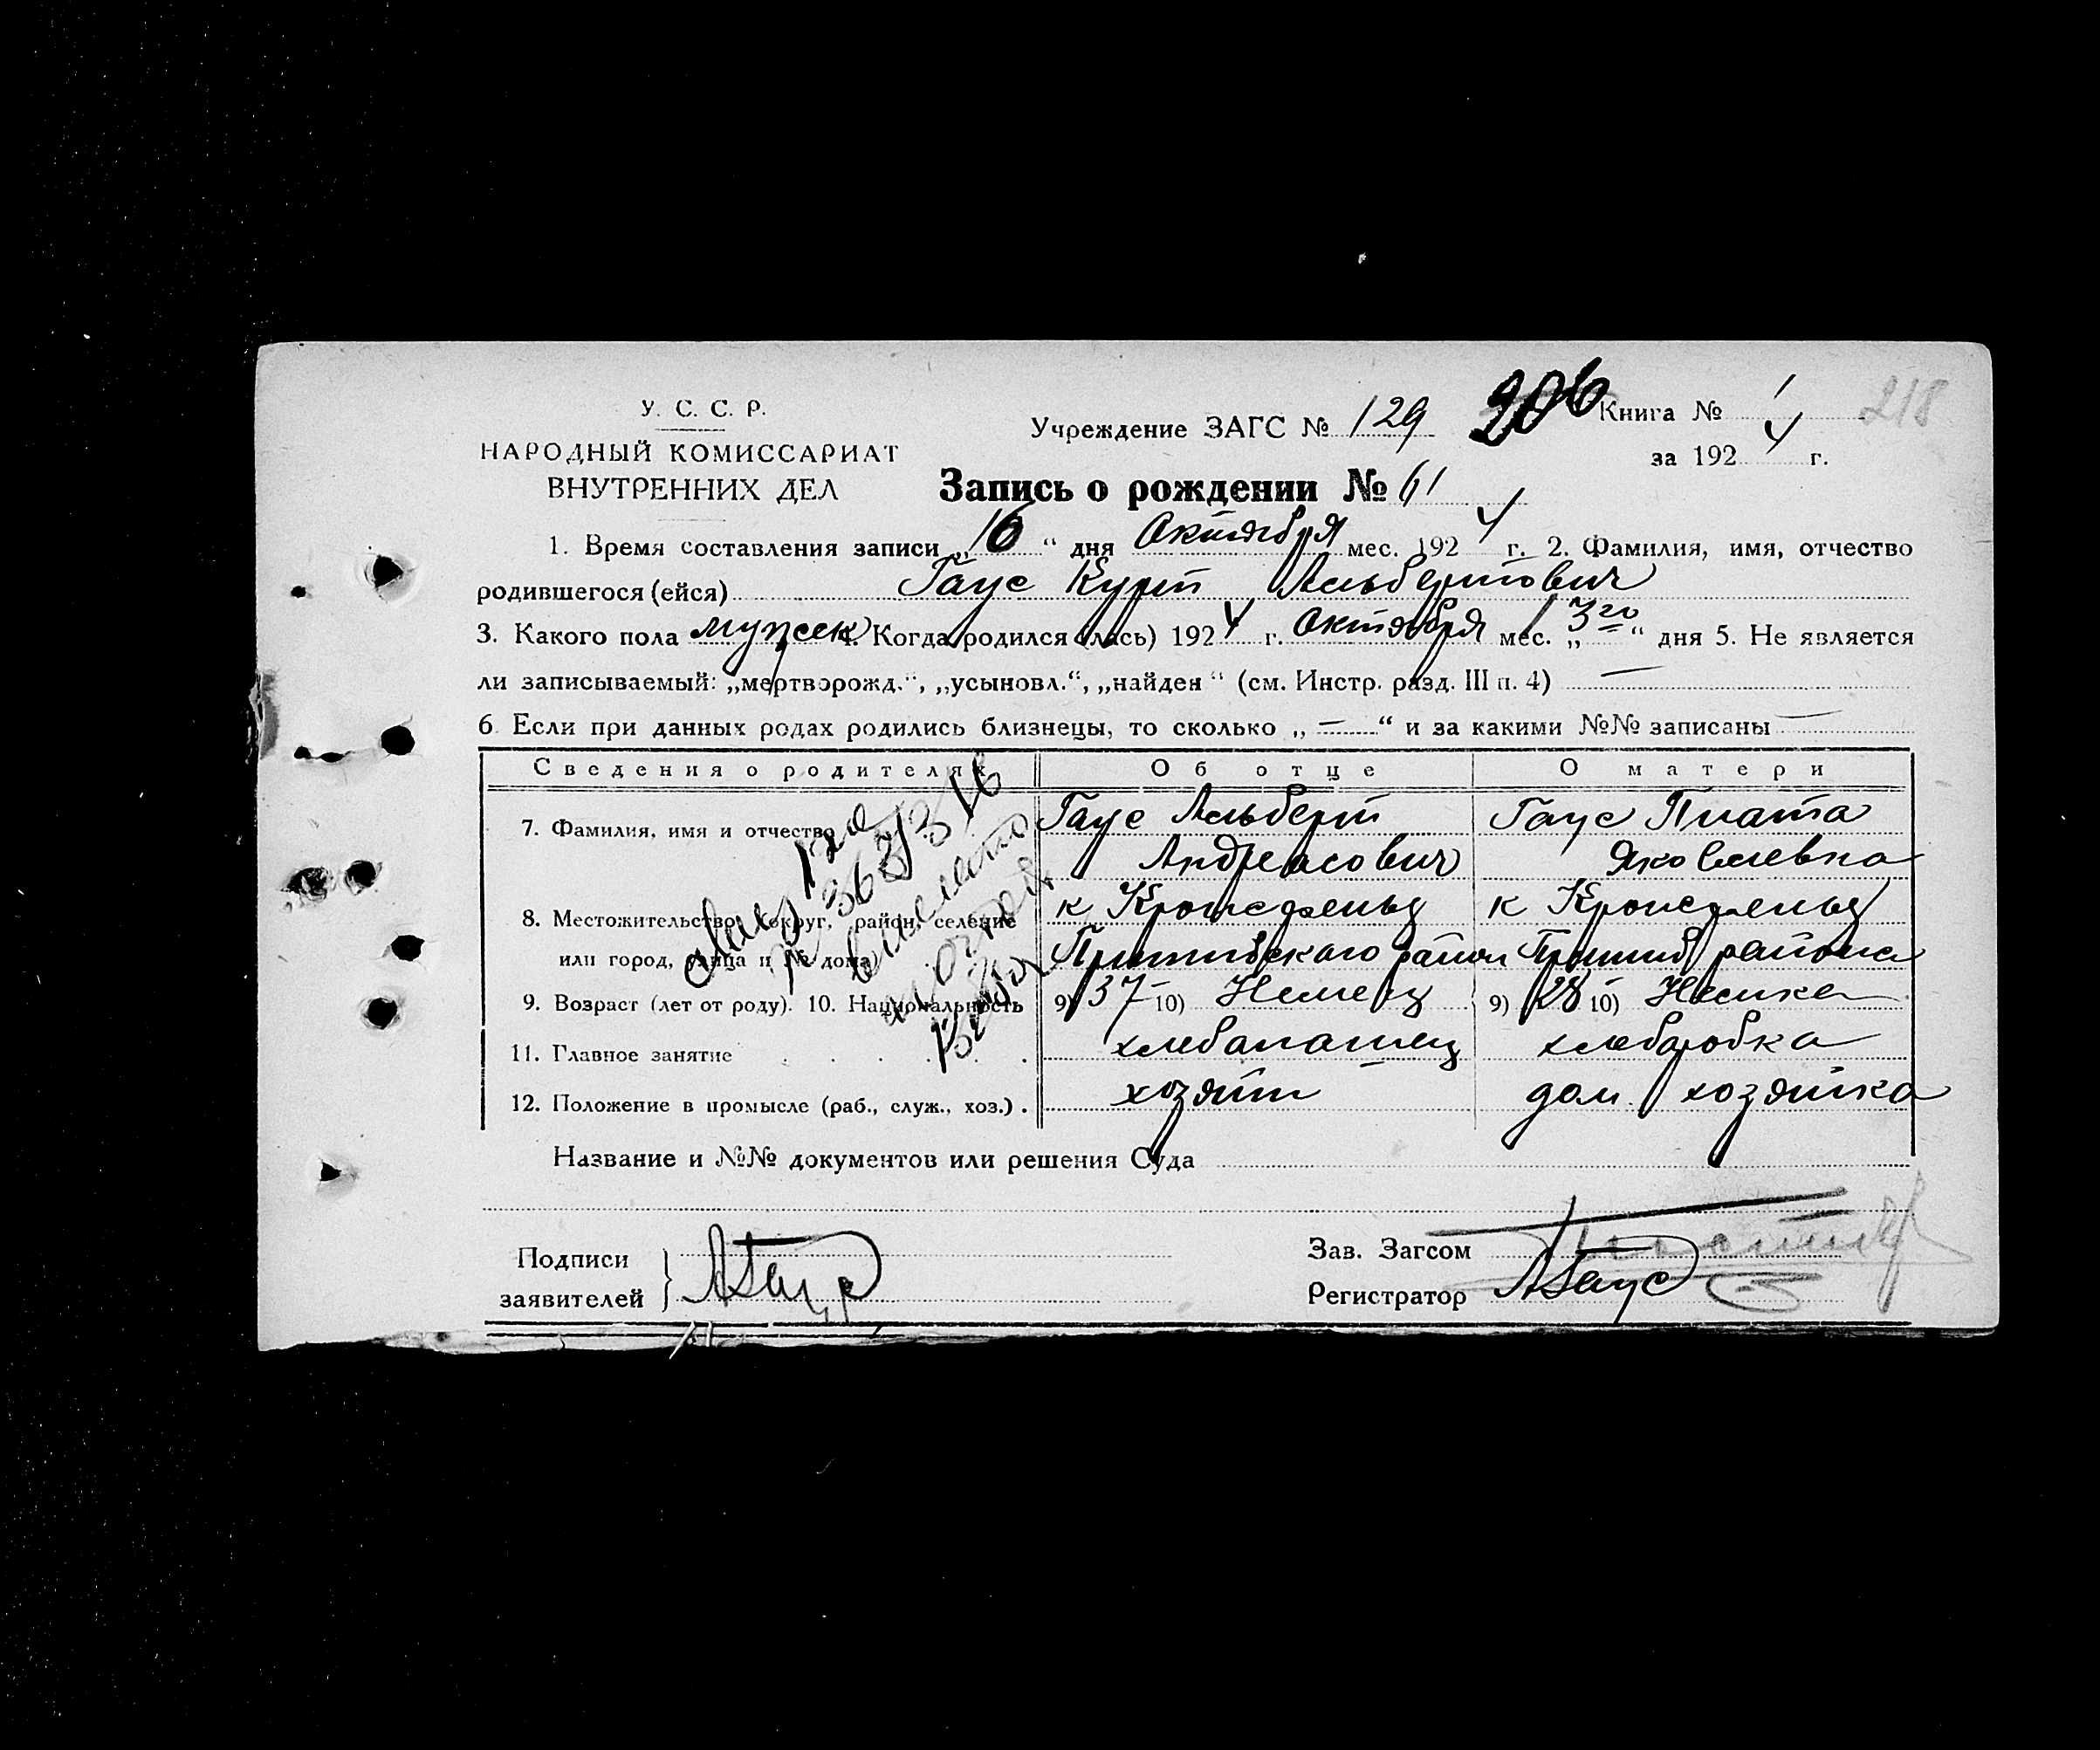 У. С. С. Р.
НАРОДНЫЙ КОМИССАРИАТ
ВНУТРЕННИХ ДЕЛ
Учреждение ЗАГС № 129 206 Книга № 1 218
за 1924 г.
Запись о рождении № 61
1. Время составления записи „16“ дня Октября мес. 1924 г. 2. Фамилия, имя, отчество
родившегося (ейся) Гаус Курт Альбертович
3. Какого пола мужск 4. Когда родился (лась) 1924 г. Октября мес. „13го“ дня 5. Не является
ли записываемый: „мертворожд.“, „усыновл.“, „найден“ (см. Инстр. разд. III п. 4) —
6 Если при данных родах родились близнецы, то сколько „—“ и за какими №№ записаны —
Сведения о родителях Об отце О матери
7. Фамилия, имя и отчество Гаус Альберт Гаус Пиата
Андреасович Яковлевна
8. Местожительство: (округ, район, селение к Кронсфельд к Кронсфельд
или город, улица и № дома) Пришибского район Пришиб района
9. Возраст (лет от роду). 10. Национальность 9) 37 10) Немец 9) 28 10) Немка
11. Главное занятие хлебопашец хлеборобка
12. Положение в промысле (раб., служ., хоз.) хозяин дом. хозяйка
Название и №№ документов или решения Суда
Подписи
заявителей } АГаус
Зав. Загсом
Регистратор АГаус